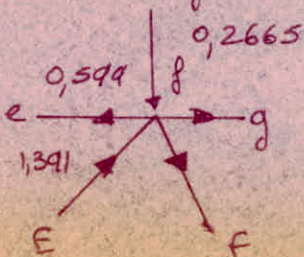 0,2665
0,599
f
e
g
1,391
E
F